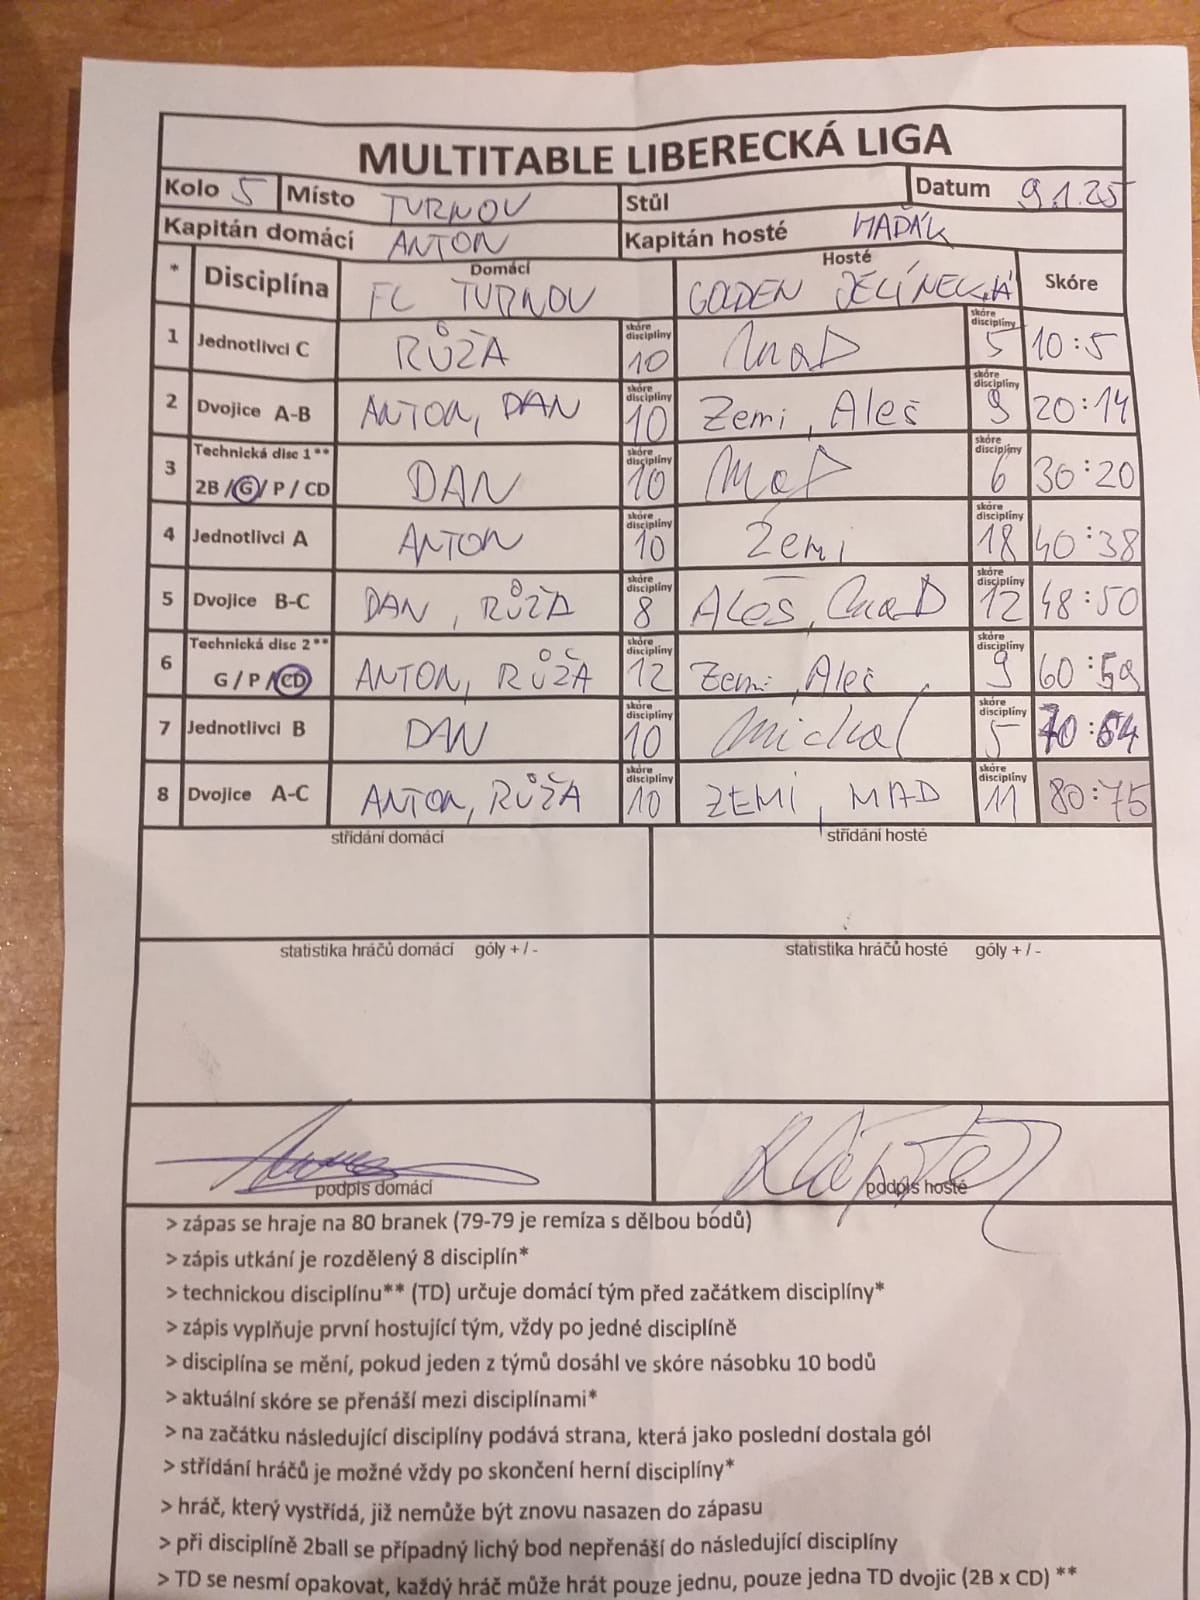 MULTITABLE LIBERECKÁ LIGA
Kolo 5 Místo TURNOV Stůl Datum 9.1.25
Kapitán domácí ANTON Kapitán hosté MAĎÁK
* Disciplína Domácí FC TURNOV Hosté GOLDEN JELÍNECKÁ Skóre
1 Jednotlivci C RŮŽA skóre disciplíny 10 skóre disciplíny 5 10:5
2 Dvojice A-B ANTON, DAN skóre disciplíny 10 Zemi, Aleš skóre disciplíny 9 20:14
3 Technická disc 1** 2B / G / P / CD DAN skóre disciplíny 10 skóre disciplíny 6 30:20
4 Jednotlivci A ANTON skóre disciplíny 10 Zemi skóre disciplíny 18 40:38
5 Dvojice B-C DAN, RŮŽA skóre disciplíny 8 Aleš, skóre disciplíny 12 48:50
6 Technická disc 2** G / P / CD ANTON, RŮŽA skóre disciplíny 12 Zemi, Aleš skóre disciplíny 9 60:59
7 Jednotlivci B DAN skóre disciplíny 10 Michal skóre disciplíny 5 70:64
8 Dvojice A-C ANTON, RŮŽA skóre disciplíny 10 ZEMI, MAD skóre disciplíny 11 80:75
střídání domácí střídání hosté
statistika hráčů domácí góly + / - statistika hráčů hosté góly + / -
podpis domácí podpis hosté
> zápas se hraje na 80 branek (79-79 je remíza s dělbou bodů)
> zápis utkání je rozdělený 8 disciplín*
> technickou disciplínu** (TD) určuje domácí tým před začátkem disciplíny*
> zápis vyplňuje první hostující tým, vždy po jedné disciplíně
> disciplína se mění, pokud jeden z týmů dosáhl ve skóre násobku 10 bodů
> aktuální skóre se přenáší mezi disciplínami*
> na začátku následující disciplíny podává strana, která jako poslední dostala gól
> střídání hráčů je možné vždy po skončení herní disciplíny*
> hráč, který vystřídá, již nemůže být znovu nasazen do zápasu
> při disciplíně 2ball se případný lichý bod nepřenáší do následující disciplíny
> TD se nesmí opakovat, každý hráč může hrát pouze jednu, pouze jedna TD dvojic (2B x CD) **